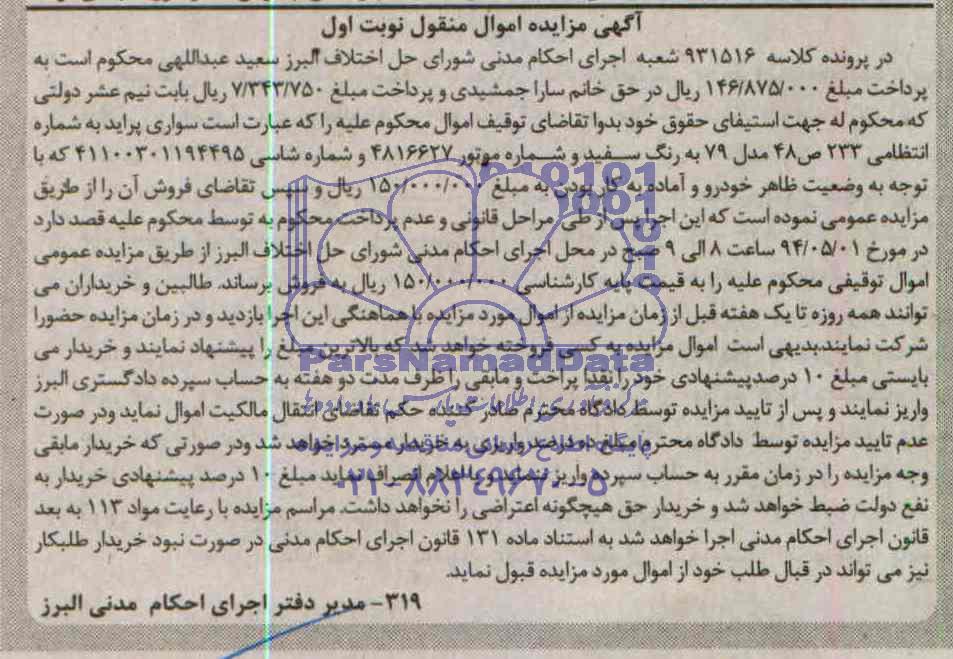 آگهی مزایده اموال منقول نوبت اول
در پرونده کلاسه ۹۳۱۵۱۶ شعبه اجرای احکام مدنی شورای حل اختلاف البرز سعید عبداللهی محکوم است به
پرداخت مبلغ ۱۴۶/۸۷۵/۰۰۰ ریال در حق خانم سارا جمشیدی و پرداخت مبلغ ۷/۳۴۳/۷۵۰ ریال بابت نیم عشر دولتی
که محکوم له جهت استیفای حقوق خود بدوا تقاضای توقیف اموال محکوم علیه را که عبارت است سواری پراید به شماره
انتظامی ۲۳۳ ص۴۸ مدل ۷۹ به رنگ سفید و شماره موتور ۴۸۱۶۶۲۷ و شماره شاسی ۴۱۱۰۰۳۰۱۱۹۴۴۹۵ که با
توجه به وضعیت ظاهر خودرو و آماده به کار بودن به مبلغ ۱۵۰/۰۰۰/۰۰۰ ریال و سپس تقاضای فروش آن را از طریق
مزایده عمومی نموده است که این اجرا پس از طی مراحل قانونی و عدم پرداخت محکوم به توسط محکوم علیه قصد دارد
در مورخ ۹۴/۰۵/۰۱ ساعت ۸ الی ۹ صبح در محل اجرای احکام مدنی شورای حل اختلاف البرز از طریق مزایده عمومی
اموال توقیفی محکوم علیه را به قیمت پایه کارشناسی ۱۵۰/۰۰۰/۰۰۰ ریال به فروش برساند. طالبین و خریداران می
توانند همه روزه تا یک هفته قبل از زمان مزایده از اموال مورد مزایده با هماهنگی این اجرا بازدید و در زمان مزایده حضورا
شرکت نمایند.بدیهی است اموال مزایده به کسی فروخته خواهد شد که بالاترین مبلغ را پیشنهاد نمایند و خریدار می
ParsNamadData
بایستی مبلغ ۱۰ درصدپیشنهادی خود را نقدا پراخت و مابقی را ظرف مدت دو هفته به حساب سپرده دادگستری البرز
واریز نمایند و پس از تایید مزایده توسط دادگاه محترم صادر کننده حکم تقاضای انتقال مالکیت اموال نماید ودر صورت
عدم تایید مزایده توسط دادگاه محترم مبلغ ده درصد واریزی به خریدار مسترد خواهد شد ودر صورتی که خریدار مابقی
وجه مزایده را در زمان مقرر به حساب سپرده واریز ننماید و یا اعلام انصراف نماید مبلغ ۱۰ درصد پیشنهادی خریدار به
۰۲۱-۸۸۳۴۹۶۷۰-۵
نفع دولت ضبط خواهد شد و خریدار حق هیچگونه اعتراضی را نخواهد داشت. مراسم مزایده با رعایت مواد ۱۱۳ به بعد
قانون اجرای احکام مدنی اجرا خواهد شد به استناد ماده ۱۳۱ قانون اجرای احکام مدنی در صورت نبود خریدار طلبکار
نیز می تواند در قبال طلب خود از اموال مورد مزایده قبول نماید.
۳۱۹- مدیر دفتر اجرای احکام مدنی البرز